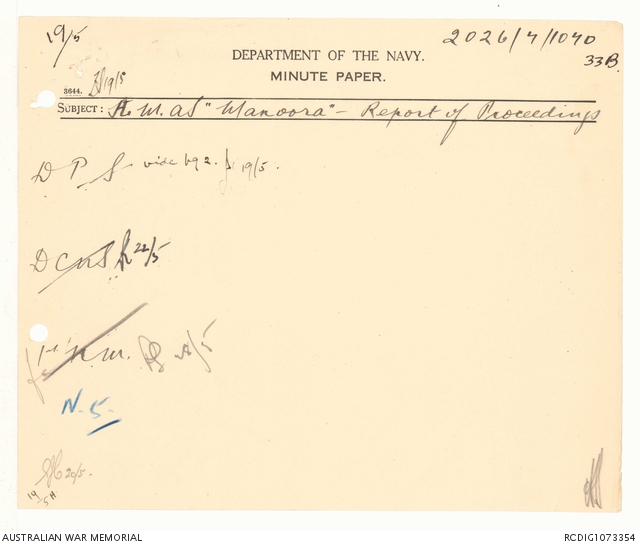 19/5
2026/7/1040
33B.
DEPARTMENT OF THE NAVY.
MINUTE PAPER.
3644.
19/5
SUBJECT: H.M.A.S "Manoora" - Report of Proceedings
D P S vide pg 2. 19/5.
D C N S 22/5
1st N.M.
N-5-
20/5.
19
5
AUSTRALIAN WAR MEMORIAL
RCDIG1073354